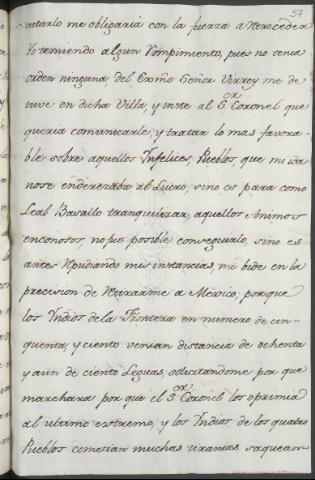 57
vitarlo me obligaria con la fuerza a Retroceder
Yo temiendo algun Rompimiento, pues no tenia
orden ninguna, del Exmo Señor Virrey me de
tuve en dicha Villa, y inste al Sor Coronel que
queria comunicarle, y tratar lo mas favora-
ble sobre aquellos Ynfelices, Pueblos que mi ida
nose enderezaba al Lucro, sino es para como
Leal Basallo tranquilizar, aquellos Animos
enconosos, nofue posible conseguirlo, sino es
antes Repudiando mis instancias, me bide en la
precision de Retirarme a Mexico, porque
los Yndios dela Frontera en numero de cin-
quenta, y ciento venian distancia de ochenta
y aun de ciento Leguas, solicitandome por que
marchara por que el Sor Coronel los oprimia
al ultimo extremo, y los Yndios de los quatro
Pueblos cometian muchas tiranias saquean